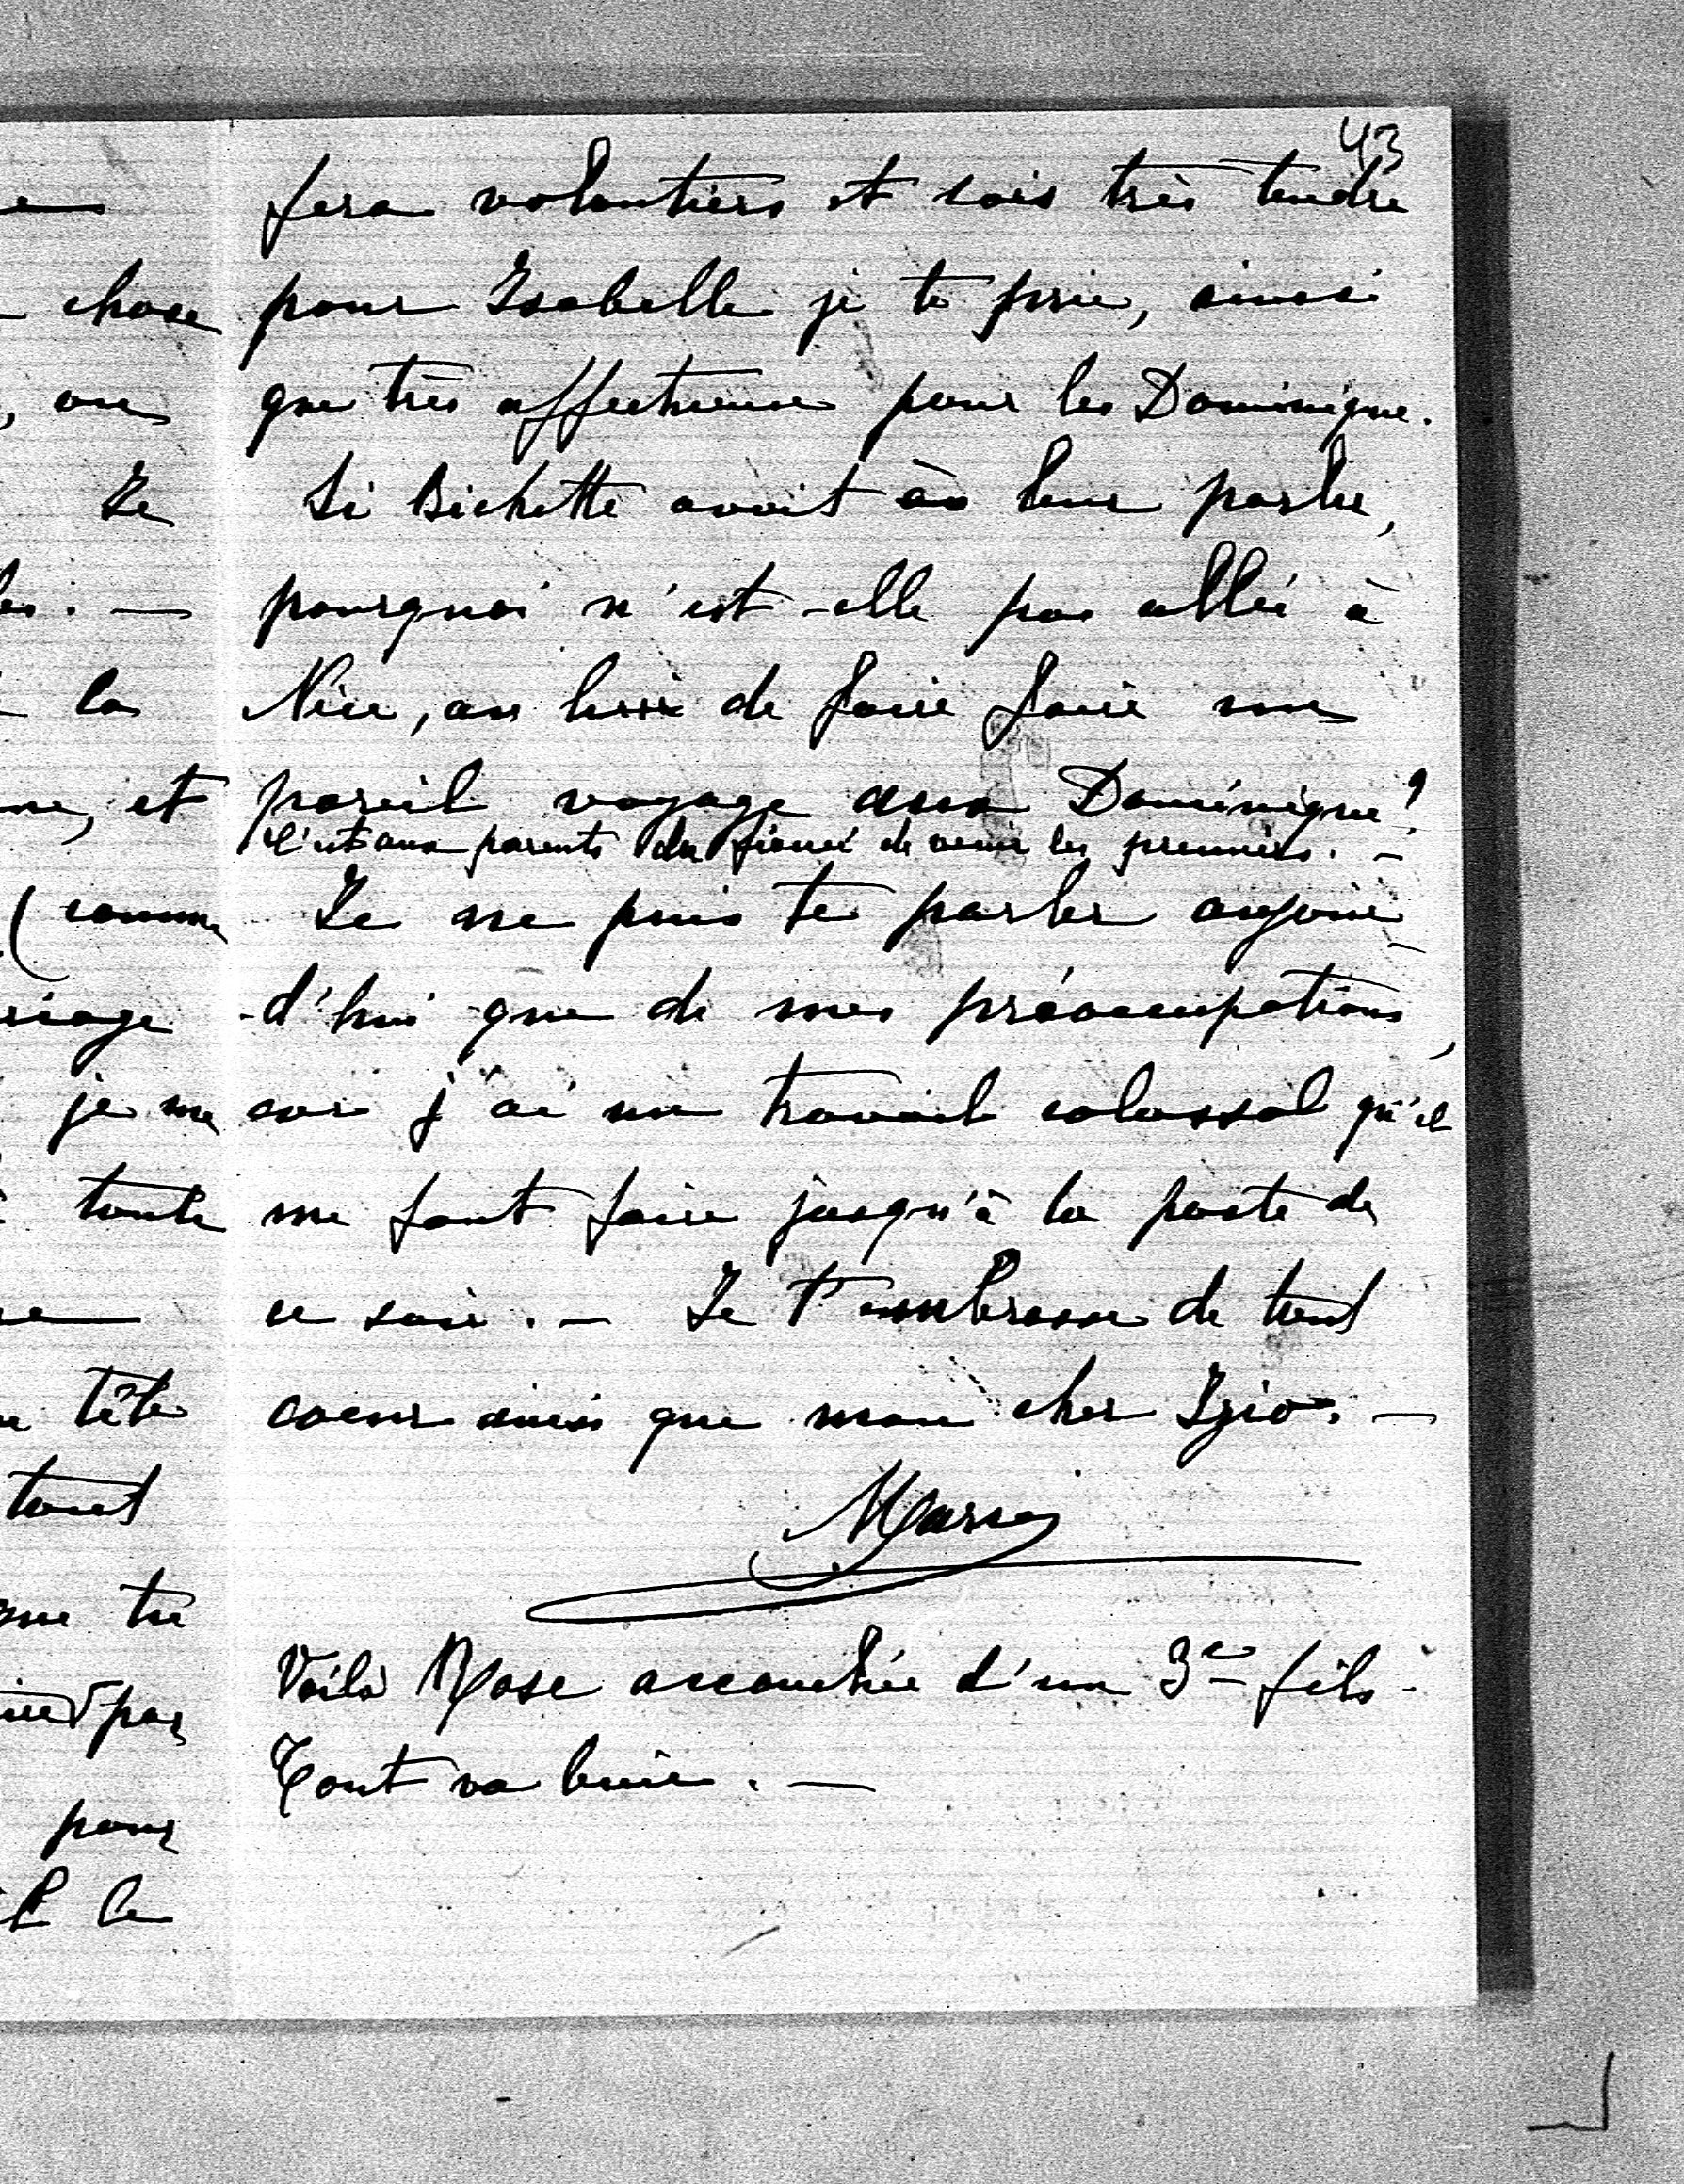 43
fera volontiers et sois très tendre
pour Isabelle je te prie, ainsi
que très affectueuse pour les Dominique.
Si Bichette avait à leur parler,
pourquoi n'est-elle pas allée à
Nice, au lieu de faire faire un
pareil voyage aux Dominique?
C'est aux parents du fiancé de venir les premiers. —
Je ne puis te parler aujour-
d'hui que de mes préoccupations,
car j'ai un travail colossal qu'il
me faut faire jusqu'à la poste de
ce soir. — Je t'embrasse de tout
coeur ainsi que mon cher Igio. —
Marie
Voilà Rose accouchée d'un 3e fils.
Tout va bien. —
chose
on
Je
la
et
(comme
je me
toute
tête
tout
tu
pas
pour
le